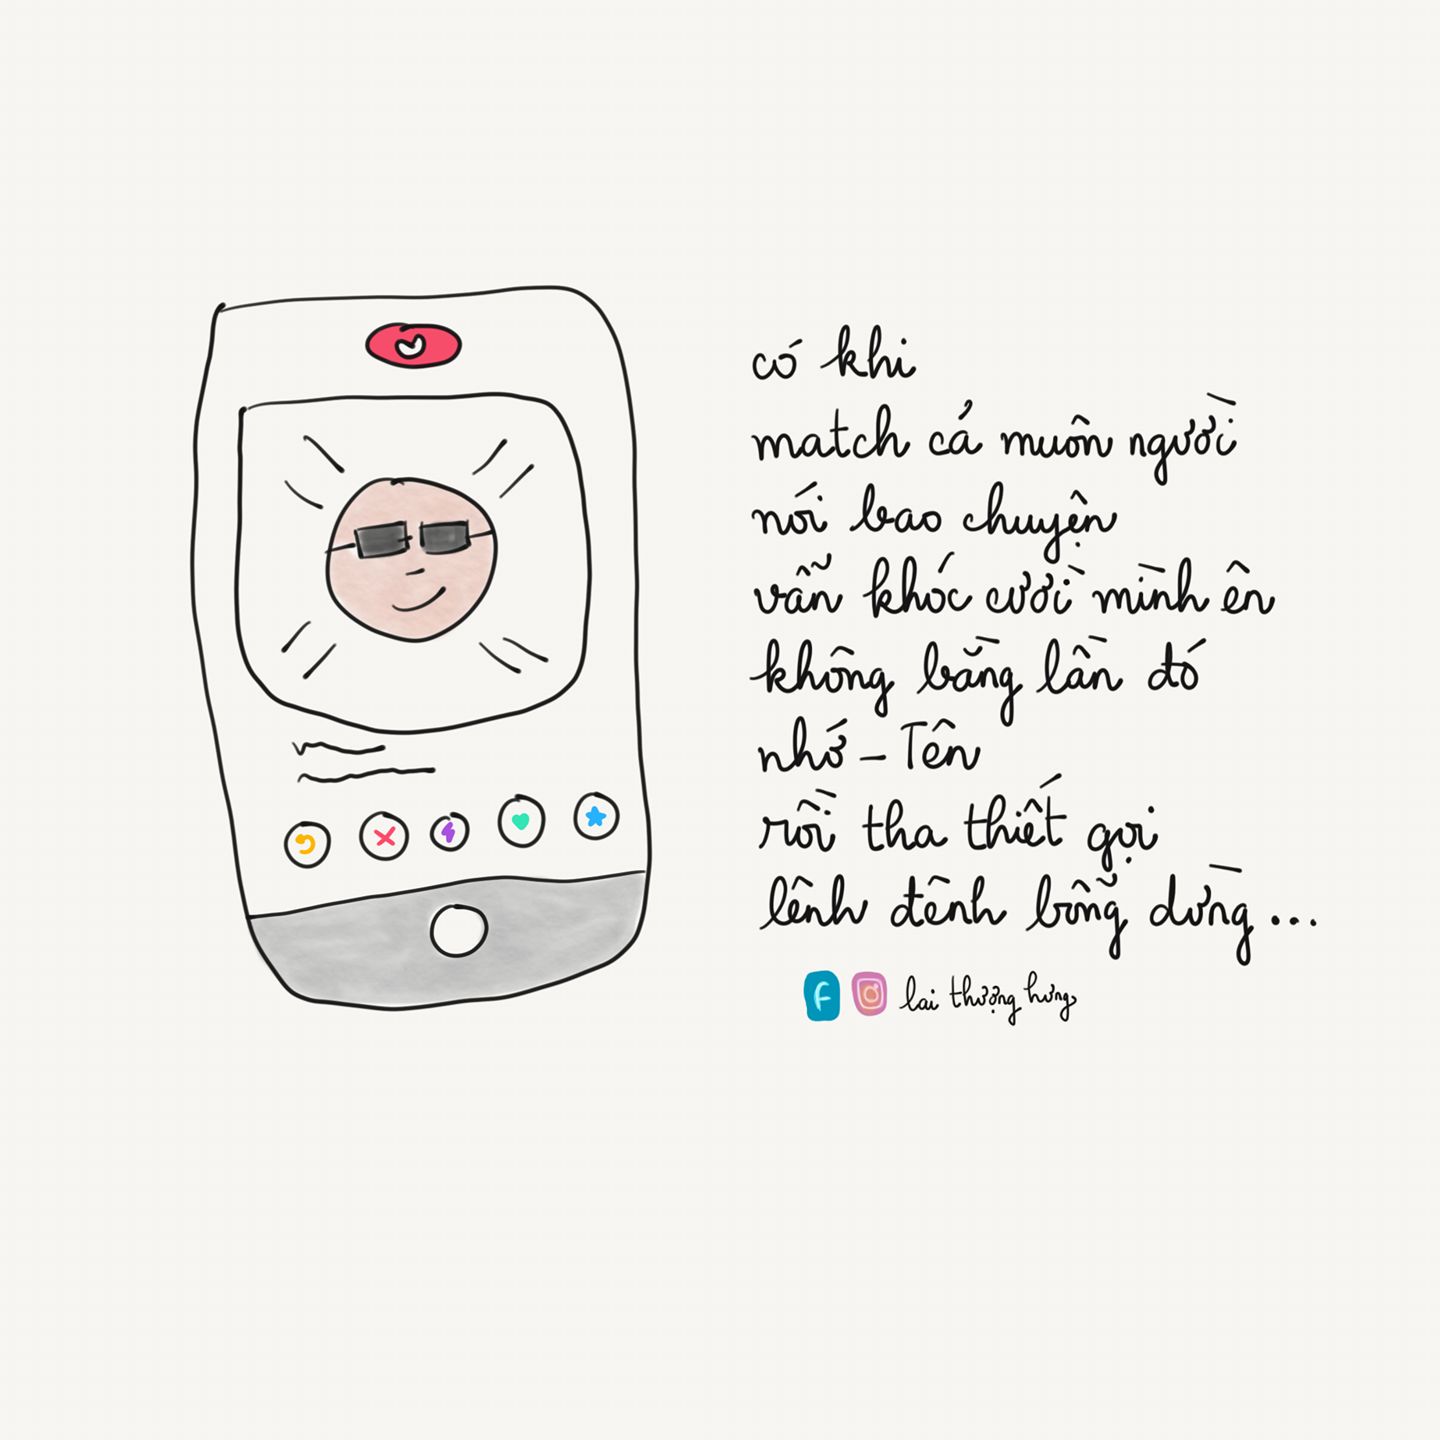 có khi
match cả muôn người
nói bao chuyện
vẫn khóc cười mình ên
không bằng lần đó
nhớ - Tên
rồi tha thiết gọi
lênh đênh bỗng dừng...
f lai thượng hưng